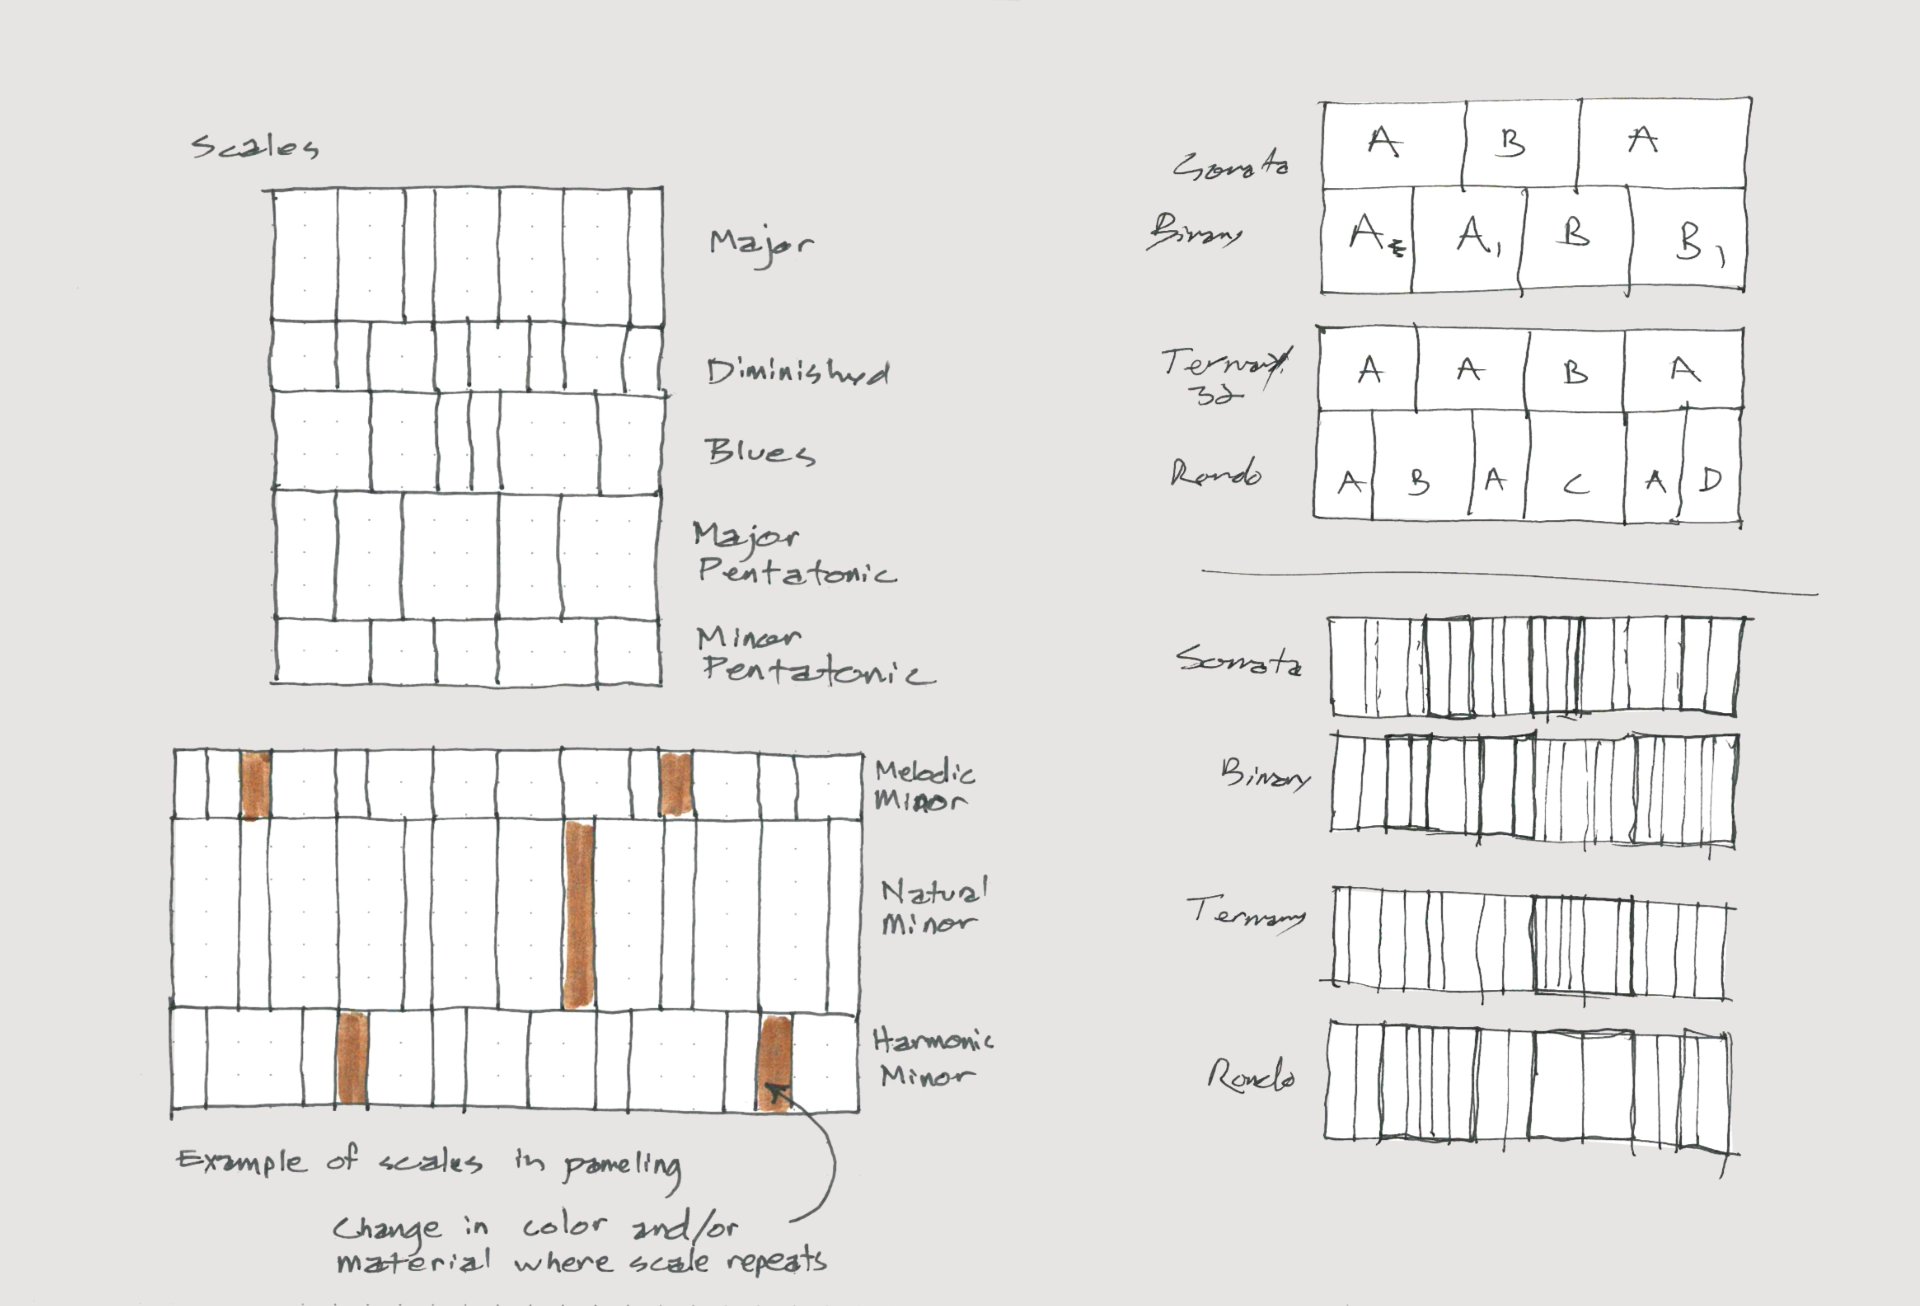 Scales
Major
Diminished
Blues
Major
Pentatonic
Minor
Pentatonic
Melodic
Minor
Natural
Minor
Harmonic
Minor
Example of scales in paneling
Change in color and/or
material where scale repeats
Sonata
A B A
Binary
A A1 B B1
Ternary
A A B A
Rondo
A B A C A D
Sonata
Binary
Ternary
Rondo